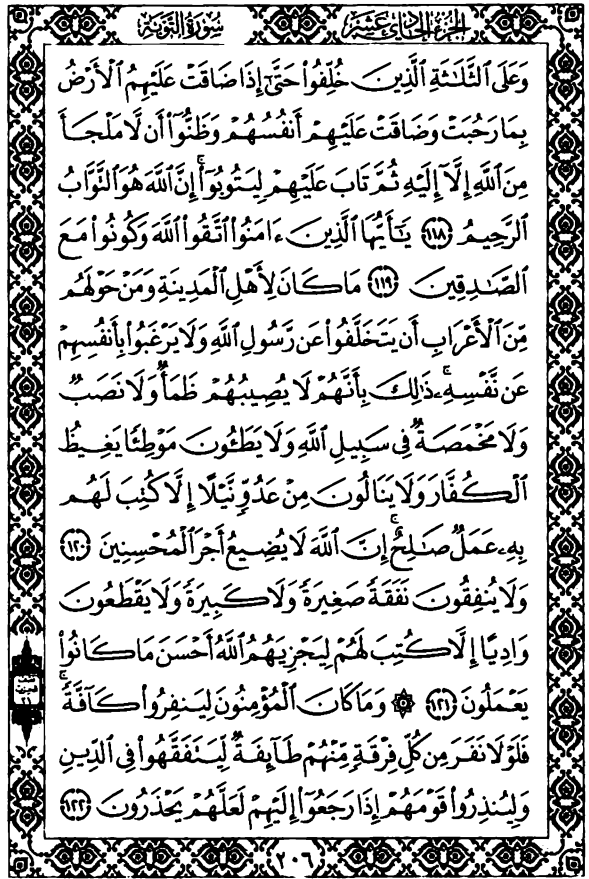 سُورَةُ التَّوْبَةِ
الجُزْءُ الحَادِي عَشَرَ
وَعَلَى ٱلثَّلَٰثَةِ ٱلَّذِينَ خُلِّفُوا۟ حَتَّىٰٓ إِذَا ضَاقَتْ عَلَيْهِمُ ٱلْأَرْضُ
بِمَا رَحُبَتْ وَضَاقَتْ عَلَيْهِمْ أَنفُسُهُمْ وَظَنُّوٓا۟ أَن لَّا مَلْجَأَ
مِنَ ٱللَّهِ إِلَّآ إِلَيْهِ ثُمَّ تَابَ عَلَيْهِمْ لِيَتُوبُوٓا۟ ۚ إِنَّ ٱللَّهَ هُوَ ٱلتَّوَّابُ
ٱلرَّحِيمُ ١١٨ يَٰٓأَيُّهَا ٱلَّذِينَ ءَامَنُوا۟ ٱتَّقُوا۟ ٱللَّهَ وَكُونُوا۟ مَعَ
ٱلصَّٰدِقِينَ ١١٩ مَا كَانَ لِأَهْلِ ٱلْمَدِينَةِ وَمَنْ حَوْلَهُم
مِّنَ ٱلْأَعْرَابِ أَن يَتَخَلَّفُوا۟ عَن رَّسُولِ ٱللَّهِ وَلَا يَرْغَبُوا۟ بِأَنفُسِهِمْ
عَن نَّفْسِهِۦ ۚ ذَٰلِكَ بِأَنَّهُمْ لَا يُصِيبُهُمْ ظَمَأٌ وَلَا نَصَبٌ
وَلَا مَخْمَصَةٌ فِى سَبِيلِ ٱللَّهِ وَلَا يَطَـُٔونَ مَوْطِئًا يَغِيظُ
ٱلْكُفَّارَ وَلَا يَنَالُونَ مِنْ عَدُوٍّ نَّيْلًا إِلَّا كُتِبَ لَهُم
بِهِۦ عَمَلٌ صَٰلِحٌ ۚ إِنَّ ٱللَّهَ لَا يُضِيعُ أَجْرَ ٱلْمُحْسِنِينَ ١٢٠
وَلَا يُنفِقُونَ نَفَقَةً صَغِيرَةً وَلَا كَبِيرَةً وَلَا يَقْطَعُونَ
وَادِيًا إِلَّا كُتِبَ لَهُمْ لِيَجْزِيَهُمُ ٱللَّهُ أَحْسَنَ مَا كَانُوا۟
يَعْمَلُونَ ١٢١ ۞ وَمَا كَانَ ٱلْمُؤْمِنُونَ لِيَنفِرُوا۟ كَآفَّةً ۚ
فَلَوْلَا نَفَرَ مِن كُلِّ فِرْقَةٍ مِّنْهُمْ طَآئِفَةٌ لِّيَتَفَقَّهُوا۟ فِى ٱلدِّينِ
وَلِيُنذِرُوا۟ قَوْمَهُمْ إِذَا رَجَعُوٓا۟ إِلَيْهِمْ لَعَلَّهُمْ يَحْذَرُونَ ١٢٢
٢٠٦